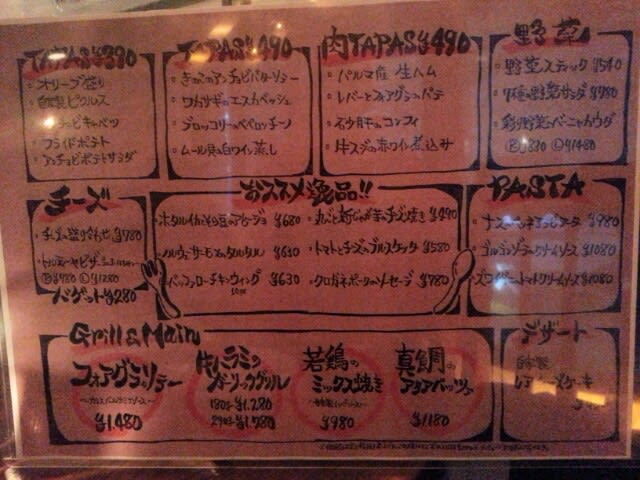 TAPAS ¥390
・オリーブ盛り
・自家製ピクルス
・アンチョビキャベツ
・フライドポテト
・アンチョビポテトサラダ
TAPAS ¥490
・きのこのアンチョビバターソテー
・ワカサギのエスカベッシュ
・ブロッコリーのペペロンチーノ
・ムール貝の白ワイン蒸し
肉TAPAS ¥490
・パルマ産 生ハム
・レバーとフォアグラのパテ
・砂肝のコンフィ
・牛スジの赤ワイン煮込み
野菜
・野菜スティック ¥540
・7種の野菜サラダ ¥780
・彩り野菜のバーニャカウダ
Ⓡ¥830 Ⓛ¥1480
チーズ
・チーズの盛り合わせ ¥780
・トルティーヤピザ
Ⓡ¥980 Ⓛ¥1280
バゲット ¥280
おススメ逸品!!
・ホタルイカと の アヒージョ ¥680
・ノルウェーサーモンのタルタル ¥630
・バッファローチキンウィング ¥630
・丸ごと新じゃが芋のチーズ焼き ¥490
・トマトとチーズのブルスケッタ ¥580
・クロガネポークのソーセージ ¥780
PASTA
・ナスの ペンネアラビアータ ¥980
・ゴルゴンゾーラクリームソース ¥1080
・ズワイガニのトマトクリームソース ¥1080
Grill & Main
フォアグラソテー
〜バルサミコソース〜
¥1,480
牛ハラミの
ガーリックグリル
180g ¥1,280
240g ¥1,780
若鶏の
ミックス焼き
¥980
真鯛の
アクアパッツァ
¥1180
デザート
自家製
レアチーズケーキ